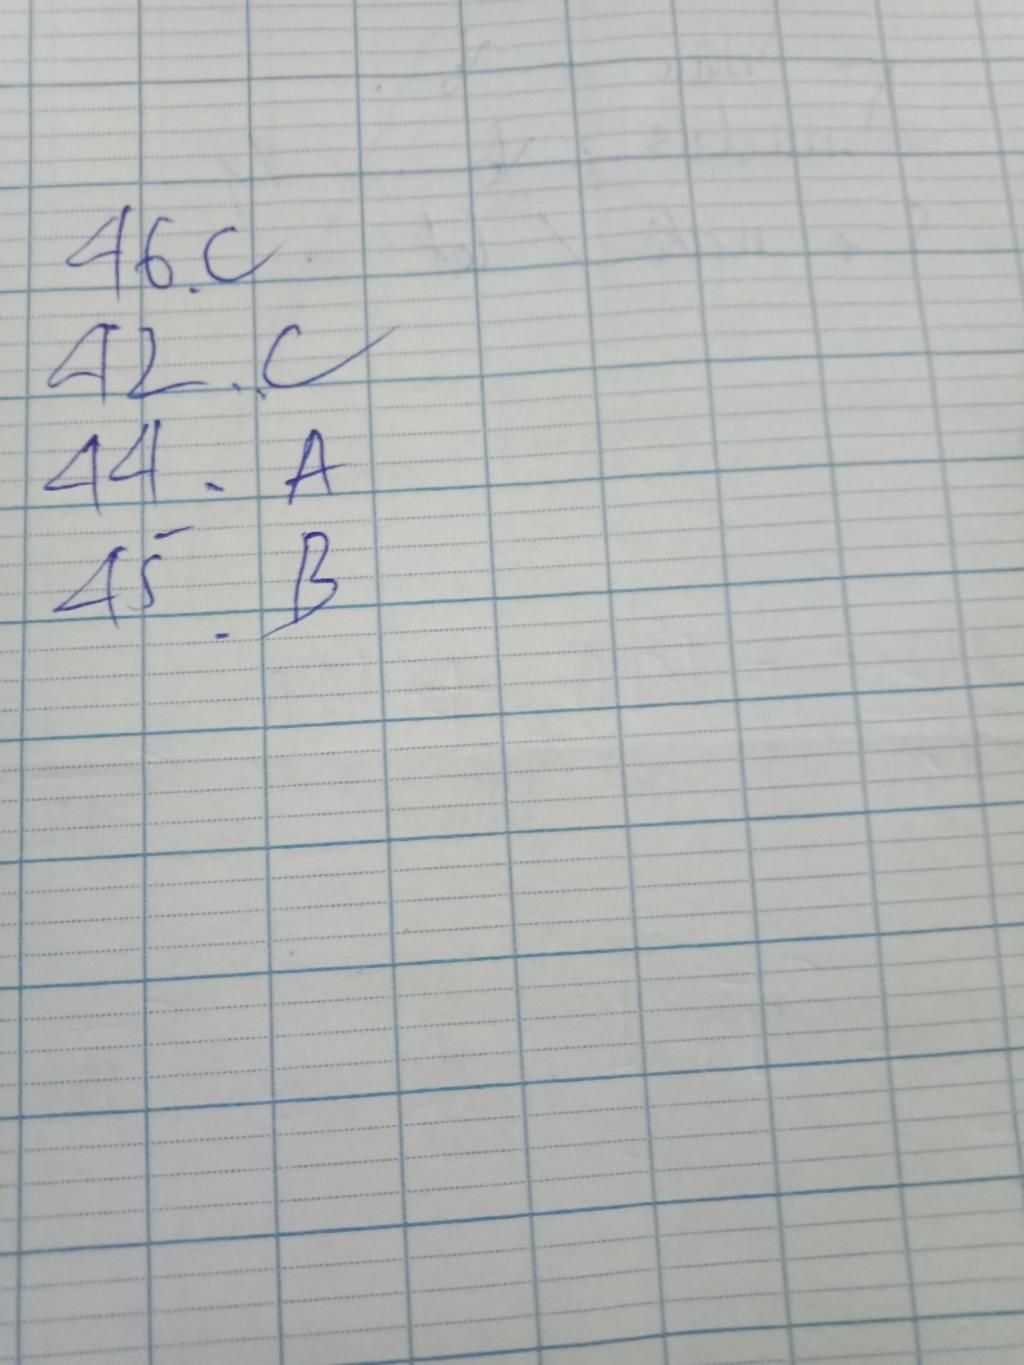 46.C
42.C
44. A
45. B